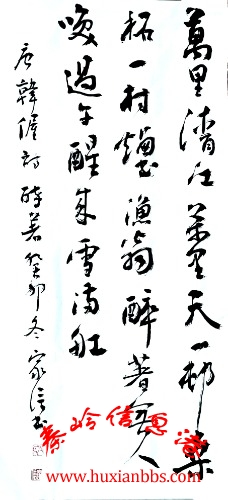 萬里清江萬里天一邨桑
柘一村煙漁翁醉著無人
喚過午醒來雪滿船
唐韓偓詩醉著癸卯冬家信書
秦岭信惠
www.huxianbbs.com